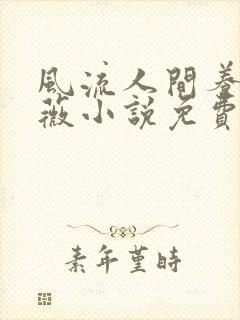 風流人間養
薇小說免費
素年堇時